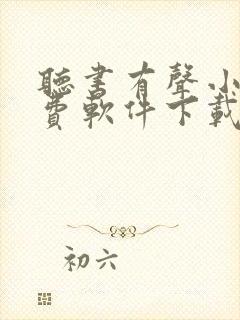 聽書有聲小
費軟件下載
初六